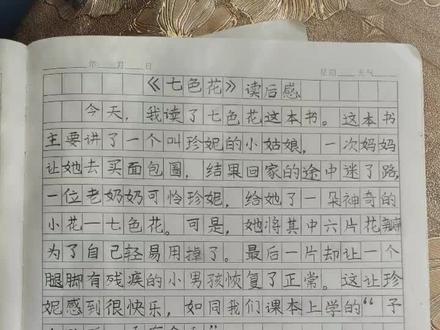 年 月 日 星期 天气
《七色花》读后感
今天，我读了七色花这本书。这本书
主要讲了一个叫珍妮的小姑娘，一次妈妈
让她去买面包圈，结果回家的途中迷了路，
一位老奶奶可怜珍妮，给她了一朵神奇的
小花—七色花。可是，她将其中六片花瓣
为了自己轻易用掉了。最后一片却让一个
腿脚有残疾的小男孩恢复了正常。这让珍
妮感到很快乐，如同我们课本上学的“子